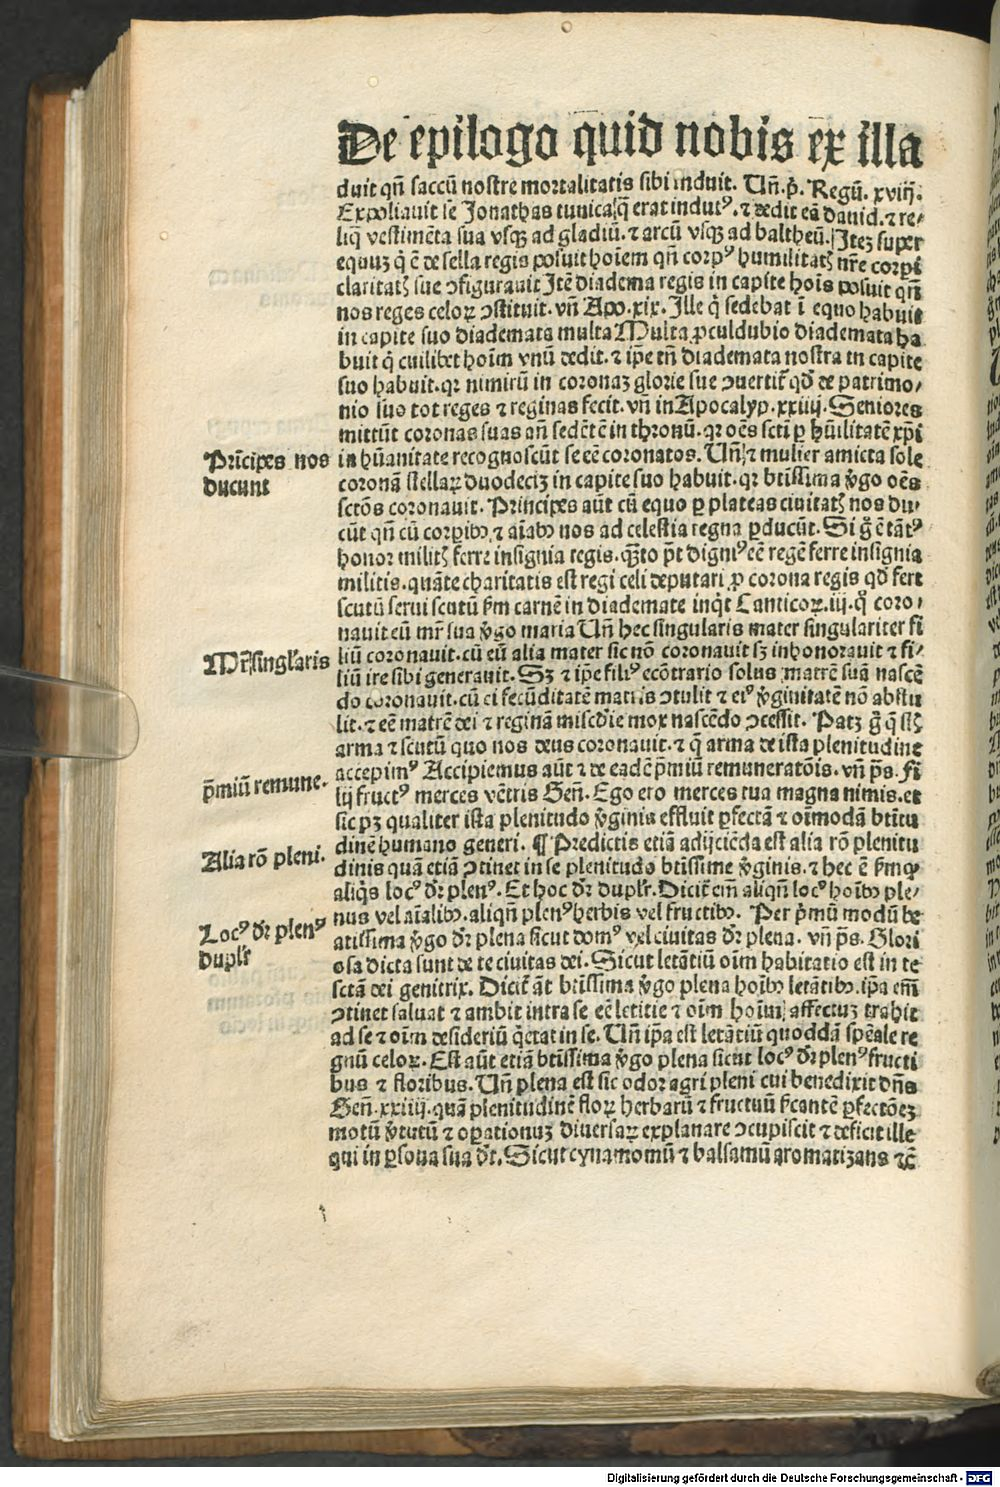 De epilogo quid nobis ex illa
duit qn̄ saccū nostre mortalitatis sibi induit. Vn̄.p̄. Regū. xviij.
Expoliauit se Jonathas tunica q̄ erat indutꝰ.⁊ dedit eā dauid.⁊ re/
liq̄ vestimēta sua vsqꝫ ad gladiū.⁊ arcū vsqꝫ ad baltheū. Iteꝫ super
equuꝫ q̄ ē de sella regis posuit hoīem qn̄ corpꝰ humilitatꝭ nr̄e corpi
claritatꝭ sue ꝯfigurauit Itē diadema regis in capite hoīs posuit qn̄
nos reges celoꝝ ꝯstituit. vn̄ Apo.xix. Ille q̄ sedebat ī equo habuit
in capite suo diademata multa Multa ꝓculdubio diademata ha
buit q̄ cuilibet hoīm vnū dedit.⁊ ip̄e tn̄ diademata nostra in capite
suo habuit.qꝛ nimirū in coronaꝫ glorie sue ꝯuertit̄ qd̄ de patrimo/
nio suo tot reges ⁊ reginas fecit. vn̄ in Apocalyp.xxiiij. Seniores
mittūt coronas suas an̄ sedētē in thronū.qꝛ oēs scti ꝑ hūilitatē xp̄i
in hūanitate recognoscūt se eē coronatos. Vn̄ ⁊ mulier amicta sole
coronā stellaꝝ duodeciꝫ in capite suo habuit.qꝛ btīssima v̄go oēs
sctōs coronauit. Principes aūt cū equo ꝑ plateas ciuitatꝭ nos du/
cūt qn̄ cū corꝑibꝫ ⁊ aīabꝫ nos ad celestia regna ꝑducūt. Si g̊ ē tātꝰ
honor militꝭ ferre insignia regis. qꝫto p̄t dignꝰ eē regē ferre insignia
militis. quāte charitatis est regi celi deputari ꝓ corona regis qd̄ fert
scutū serui scutū ꝑm carnē in diademate inqt̄ Canticoꝝ.iij. q̊ coro/
nauit eū mr̄ sua v̄go maria Vn̄ hec singularis mater singulariter fi
liū coronauit. cū eū alia mater sic nō coronauit sꝫ inhonorauit ⁊ fi/
liū ire sibi generauit. Sꝫ ⁊ ip̄e filiꝰ ecōtrario solus matrē suā nascē
do coronauit. cū ei fecūditatē matris ꝯtulit ⁊ eiꝰ v̄ginitatē nō abstu
lit.⁊ eē matrē dei ⁊ reginā miscd̄ie mox nascēdo ꝯcessit. Patꝫ g̊ q̄ st̄
arma ⁊ scutū quo nos deus coronauit.⁊ q̄ arma de ista plenitudine
accepimꝰ Accipiemus aūt ⁊ de eadē p̄miū remuneratōis. vn̄ ps. Fi
lij fructꝰ merces vētris Gen̄. Ego ero merces tua magna nimis. et
sic pꝫ qualiter ista plenitudo v̄ginis effluit ꝑfectā ⁊ oīmodā btītu
dinē humano generi. ¶ Predictis etiā adijciēda est alia rō plenitu
dinis quā etiā ꝯtinet in se plenitudo btīssime v̄ginis.⁊ hec ē ꝑmꝙ
aliq̄s locꝰ dr̄ plenꝰ. Et hoc dr̄ duplr̄. Dicit̄ em̄ aliqn̄ locꝰ hoībꝫ ple/
nus vel aīalibꝫ. aliqn̄ plenꝰ herbis vel fructibꝫ. Per p̄mū modū be
atissima v̄go dr̄ plena sicut domꝰ vel ciuitas dr̄ plena. vn̄ ps. Glori
osa dicta sunt de te ciuitas dei. Sicut letātiū oīm habitatio est in te
sctā dei genitrix. Dicit̄ āt btīssima v̄go plena hoībꝫ letātibꝫ. ip̄a em̄
ꝯtinet saluat ⁊ ambit intra se eē letitie ⁊ oīm hoīm affectuꝫ trahit
ad se ⁊ oīm desideriū q̄etat in se. Vn̄ ip̄a est letātiū quoddā spēale re
gnū celoꝝ. Est aūt etiā btīssima v̄go plena sicut locꝰ dr̄ plenꝰ fructi
bus ⁊ floribus. Vn̄ plena est sic odor agri pleni cui benedixit dn̄s
Gen̄.xxiiij. quā plenitudinē floꝝ herbarū ⁊ fructuū ... ꝑfectōeꝫ
motū v̄tutū ⁊ oꝑationuꝫ diuersaꝝ explanare ꝯcupiscit ⁊ deficit ille
qui in ꝑsona sua dr̄t. Sicut cynamomū ⁊ balsamū aromatizans ⁊c̄
Prīcipes nos
ducunt
Mr̄ singl̄aris
p̄miū remune.
Alia rō pleni.
Locꝰ dr̄ plenꝰ
duplr̄
Digitalisierung gefördert durch die Deutsche Forschungsgemeinschaft - DFG